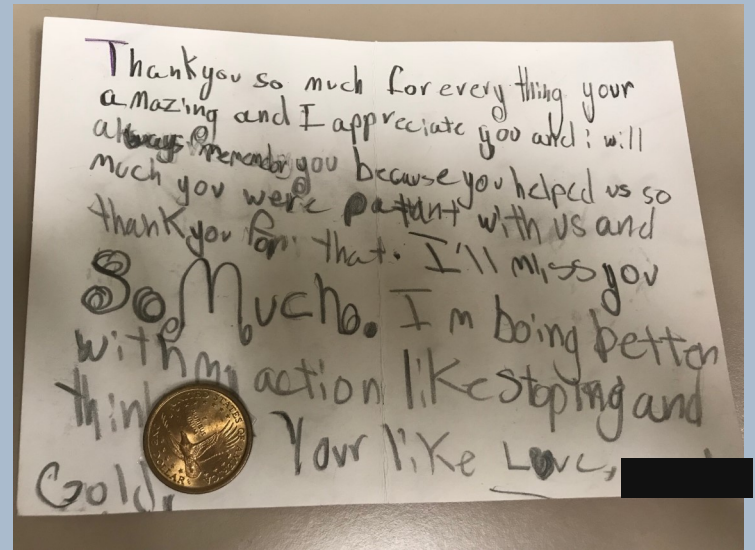 Thankyou so much for every thing your
amazing and I appreciate you and i will
always rememdor you because you helped us so
much you were patunt with us and
thank you for that. I'll miss you
So Much. I'm boing better
with my action like stoping and
think
Your like Love,
Gold.
UNITED STATES OF